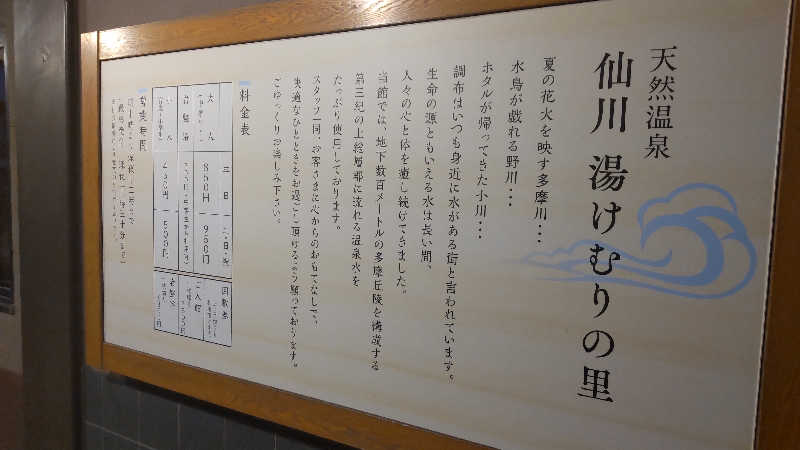 天然温泉
仙川 湯けむりの里
夏の花火を映す多摩川・・・
水鳥が戯れる野川・・・
ホタルが帰ってきた小川・・・
調布はいつも身近に水がある街と言われています。
生命の源ともいえる水は長い間、
人々の心と体を癒し続けてきました。
当館では、地下数百メートルの多摩丘陵を構成する
第三紀の上総層郡に流れる温泉水を
たっぷり使用しております。
スタッフ一同、お客さまに心からのおもてなしで、
快適なひとときをお過ごし頂けるよう願っております。
ごゆっくりお楽しみ下さい。
料金表
平日
土・日・祝
回数券
大人
850円
950円
岩盤浴
450円
500円
営業時間